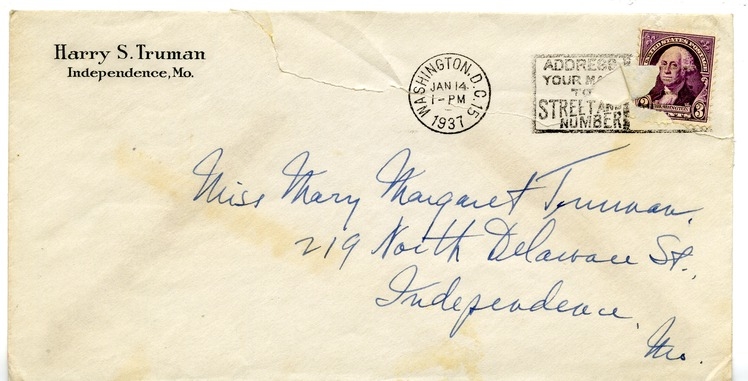 Harry S. Truman
Independence, Mo.
WASHINGTON, D.C. 15
JAN 14
1-PM
1937
ADDRESS
YOUR
TO
STREET AND
NUMBER
UNITED STATES POSTAGE
WASHINGTON
3
Miss Mary Margaret Truman,
219 North Delaware St.,
Independence,
Mo.